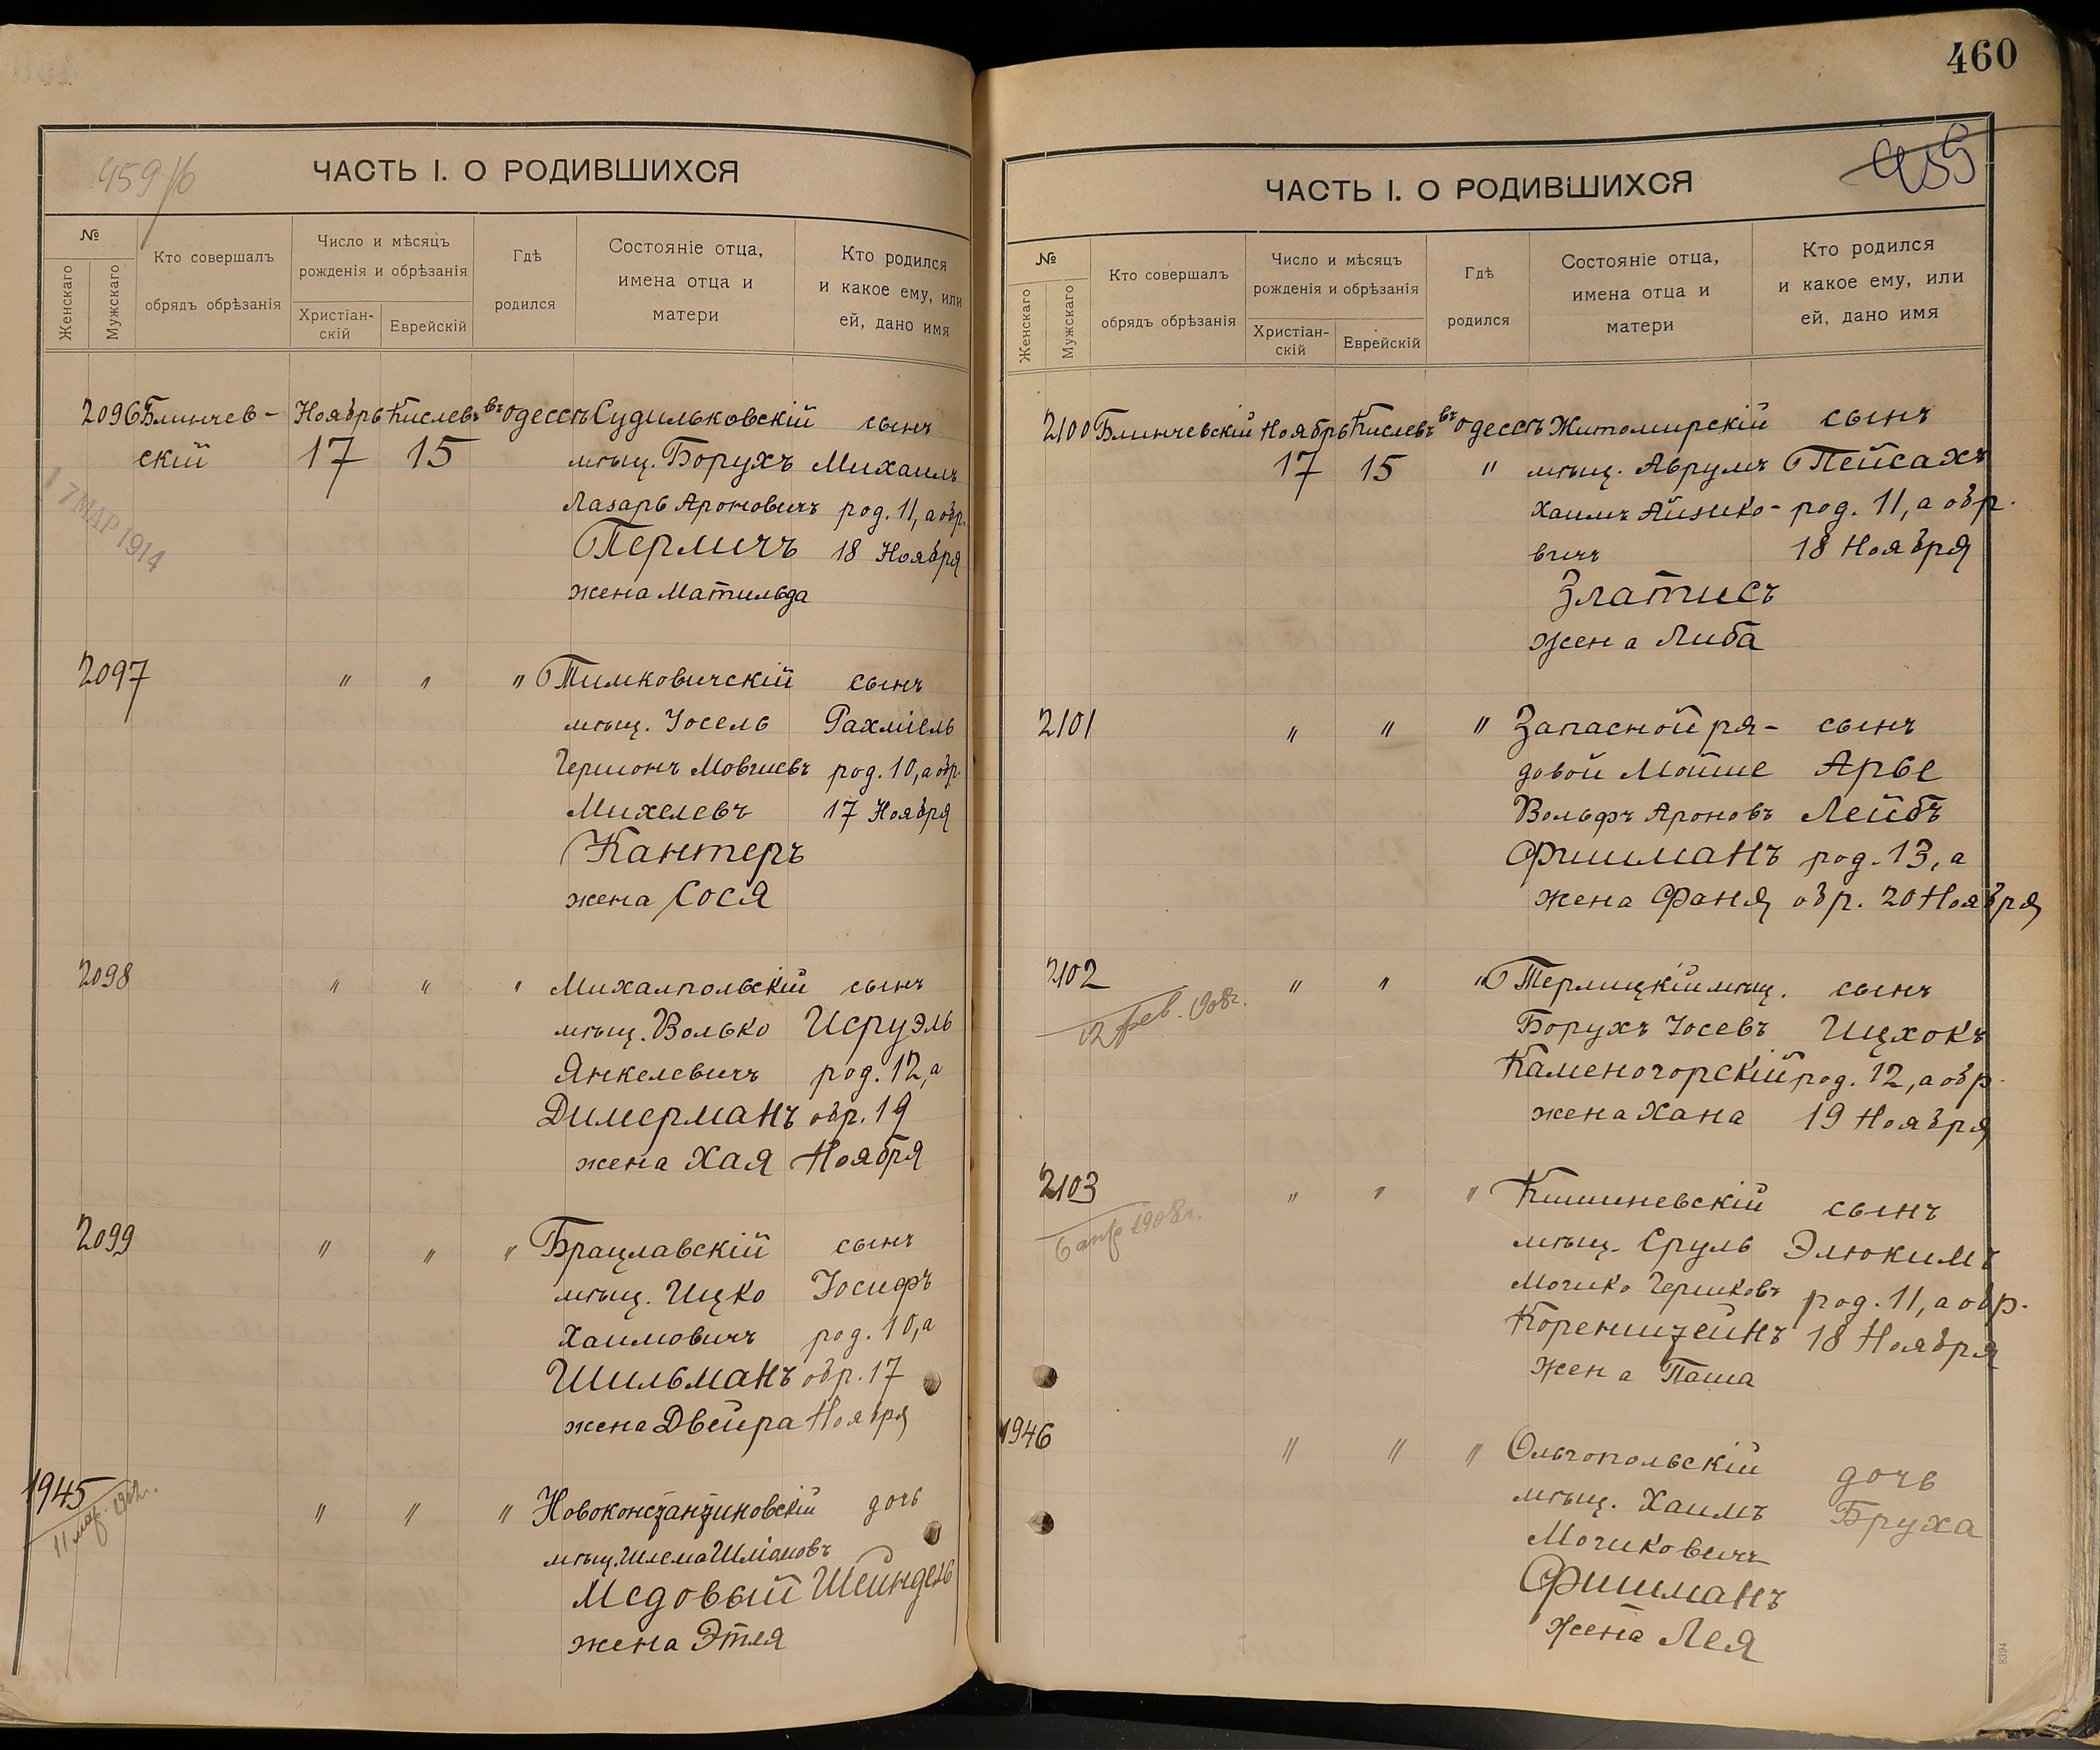 459/б
ЧАСТЬ I. О РОДИВШИХСЯ
№
Женскаго
Мужскаго
Кто совершалъ
обрядъ обрѣзанія
Число и мѣсяцъ
рожденія и обрѣзанія
Христіан-
скій
Еврейскій
Гдѣ
родился
Состояніе отца,
имена отца и
матери
Кто родился
и какое ему, или
ей, дано имя
2096 Блинчев- Ноябрь Кислевъ въ Одессѣ Судильковскій сынъ
скій 17 15 мѣщ. Борухъ Михаилъ
Лазарь Ароновичъ род. 11, а обр.
Перличъ 18 Ноября
жена Матильда
17 МАР 1914
2097 " " " Тимковичскій сынъ
мѣщ. Іосель Рахміель
Гершонъ Мовшевъ род. 10, а обр.
Михелевъ 17 Ноября
Кантеръ
жена Сося
2098 " " " Михалпольскій сынъ
мѣщ. Волько Исруэль
Янкелевичъ род. 12, а
Димерманъ обр. 19
жена Хая Ноября
2099 " " " Брацлавскій сынъ
мѣщ. Ицко Іосифъ
Хаимовичъ род. 10, а
Шильманъ обр. 17
жена Двейра Ноября
1945 " " " Новоконстантиновскій дочь
мѣщ. Шлема Шліомовъ
Медовый Шейндель
жена Этля
460
459
ЧАСТЬ I. О РОДИВШИХСЯ
№
Женскаго
Мужскаго
Кто совершалъ
обрядъ обрѣзанія
Число и мѣсяцъ
рожденія и обрѣзанія
Христіан-
скій
Еврейскій
Гдѣ
родился
Состояніе отца,
имена отца и
матери
Кто родился
и какое ему, или
ей, дано имя
2100 Блинчевскій Ноябрь Кислевъ въ Одессѣ Житомирскій сынъ
17 15 " мѣщ. Аврумъ Пейсахъ
Хаимъ Айзико- род. 11, а обр.
вичъ 18 Ноября
Златисъ
жена Либа
2101 " " " Запасной ря- сынъ
довой Мойше Арье
Вольфъ Ароновъ Лейбъ
Фишманъ род. 13, а
жена Фаня обр. 20 Ноября
2102 " " " Терлицкій мѣщ. сынъ
12 фев. 1908г.
Борухъ Іосевъ Ицхокъ
Каменогорскій род. 12, а обр.
жена Хана 19 Ноября
2103 " " " Кишиневскій сынъ
6 апр 1908г.
мѣщ. Сруль Элюкимъ
Мошко Гершковъ род. 11, а обр.
Коренштейнъ 18 Ноября
жена Паша
1946 " " " Ольгопольскій дочь
мѣщ. Хаимъ Бруха
Мошковичъ
Фишманъ
жена Лея
8394